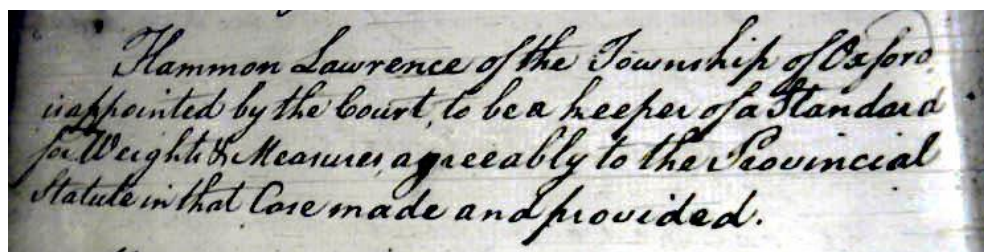 Hammon Lawrence of the Township of Oxford
is appointed by the Court, to be a keeper of a Standard
for Weights & Measures, agreeably to the Provincial
Statute in that Case made and provided.